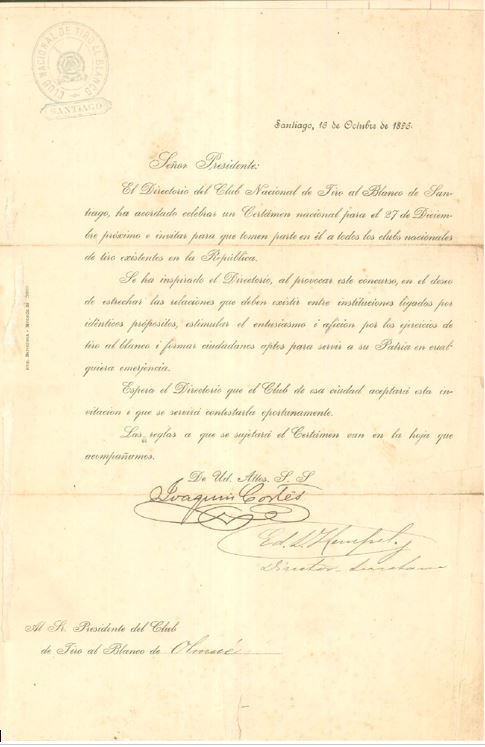 CLUB NACIONAL DE TIRO AL BLANCO
SANTIAGO
Santiago, 15 de Octubre de 1895.
Señor Presidente:
El Directorio del Club Nacional de Tiro al Blanco de San-
tiago, ha acordado celebrar un Certámen nacional para el 27 de Diciem-
bre próximo e invitar para que tomen parte en él a todos los clubs nacionales
de tiro existentes en la República.
Se ha inspirado el Directorio, al provocar este concurso, en el deseo
de estrechar las relaciones que deben existir entre instituciones ligadas por
idénticos propósitos, estimular el entusiasmo i aficion por los ejercicios de
tiro al blanco i formar ciudadanos aptos para servir a su Patria en cual-
quiera emerjencia.
Espera el Directorio que el Club de esa ciudad aceptará esta in-
vitacion i que se servirá contestarla oportunamente.
Las reglas a que se sujetará el Certámen van en la hoja que
acompañamos.
De Ud. Attos. S. S
Joaquin Cortés
Director
Al Sr. Presidente del Club
de Tiro al Blanco de